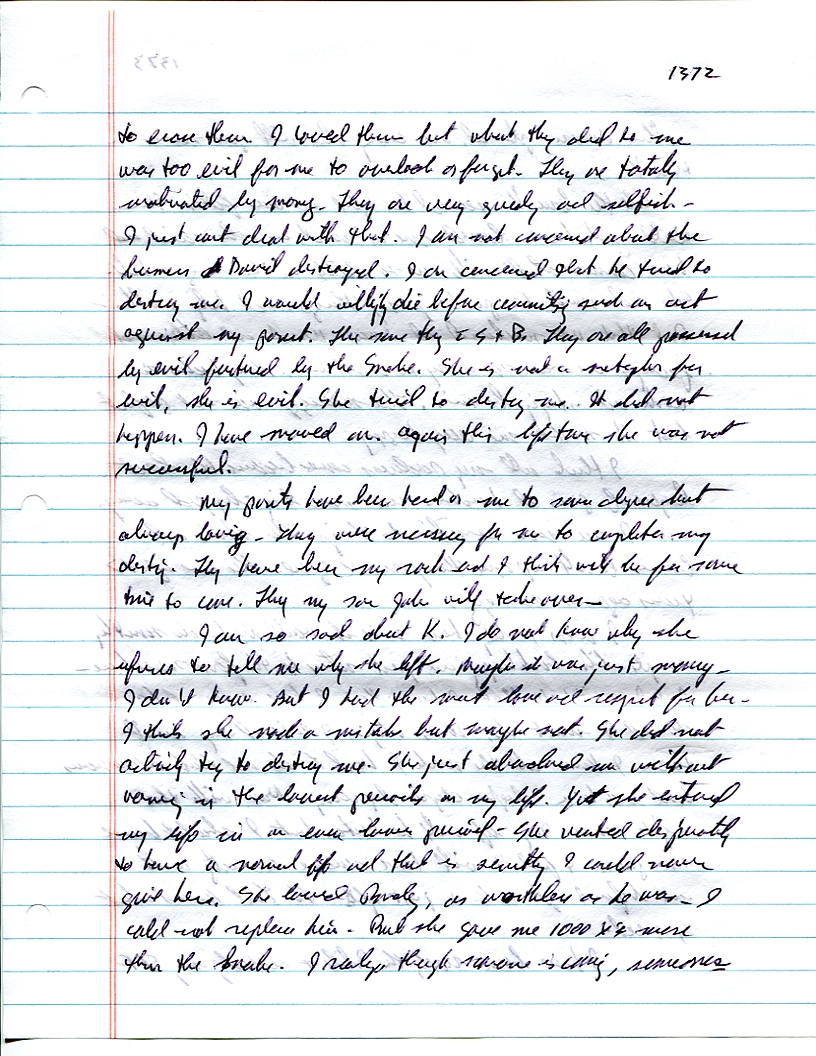 1372
to erase them. I loved them but what they did to me
was too evil for me to overlook or forget. They are totally
motivated by money. They are very greedy and selfish -
I just cant deal with that. I am not concerned about the
business David destroyed. I am concerned that he tried to
destroy me. I would willingly die before committing such an act
against my parent. The same thing S + B. They are all possessed
by evil fostered by the Snake. She is not a metaphor for
evil, she is evil. She tried to destroy me. It did not
happen. I have moved on. again this lifetime she was not
successful.
My parents have been hard on me to some degree but
always loving - They were necessary for me to complete my
destiny. They have been my rock and I think will be for some
time to come. Then my son will takeover -
I am so sad about K. I do not know why she
refuses to tell me why she left. Maybe it was just money -
I don't know. But I had the most love and respect for her -
I think she made a mistake but maybe not. She did not
actively try to destroy me. She just abandoned me without
warning in the lowest periods in my life. Yet she entered
my life in an even lower period - She wanted desperately
to have a normal life and that is something I could never
give her. She loved as worthless as he was - I
could not replace him - But she gave me 1000 x's more
than the Snake. I realize though someone is coming, someone